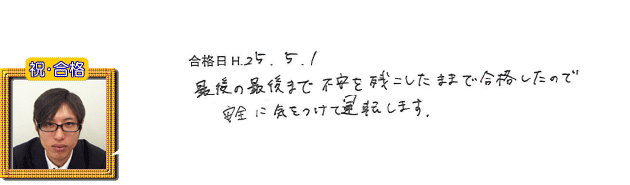 祝・合格
合格日 H.25.5.1
最後の最後まで不安を残こしたままで合格したので
安全に気をつけて運転します。